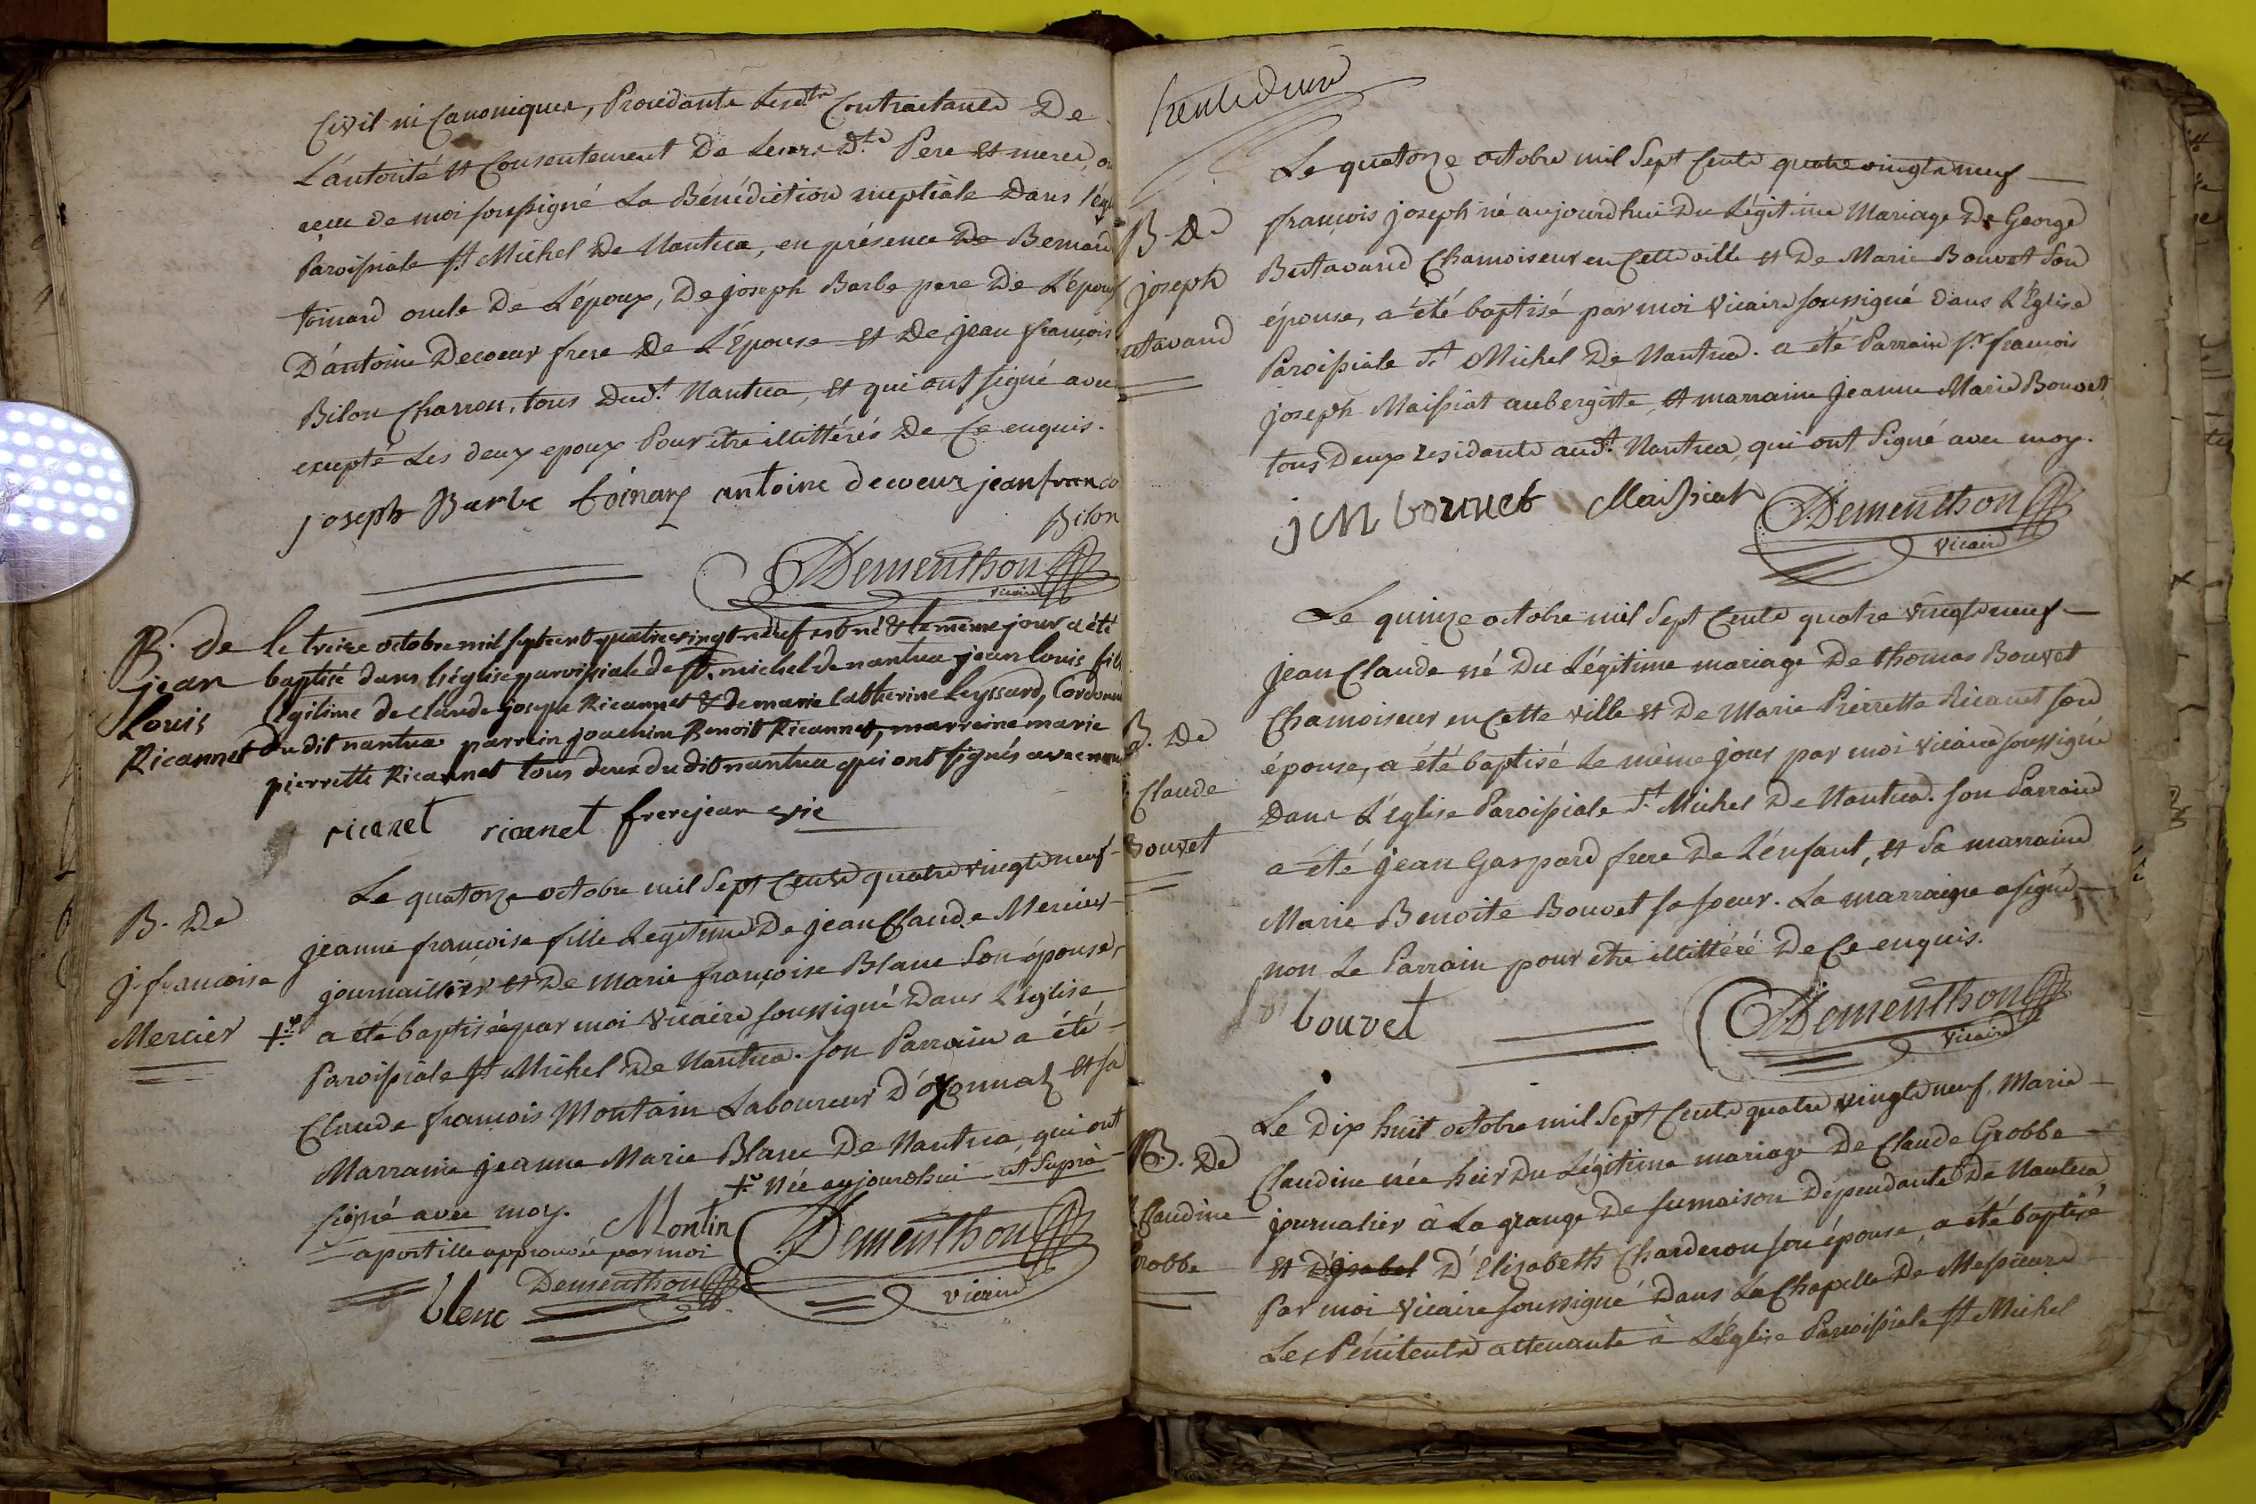 Civil ni Canoniques, Procédants Lesdts Contractants De
L'autorité et Consentement De Leurs Dts Pere et meres, on
reçu de moi soussigné La Bénédiction nuptiale Dans l'égl
Paroissiale St Michel De Nantua, en présence De Bernard
toinard oncle De L'époux, De joseph Barbe pere De L'époux
D'antoine Decoeur frere De L'Epouse et De jean françois
Bilon Charron, tous Dudt. Nantua, et qui ont signé avec
excepté Les deux epoux Pour être illittérés De Ce enquis.
joseph Barbe toinard antoine decoeur jean franco
Bilon
Dementhon
vicaire
B. de
jean
Louis
Ricannet
le treize octobre mil sept cent quatre vingt neuf est né & le même jour a été
baptisé dans l'église paroissiale de St. michel de nantua jean louis fils
légitime de claude joseph Ricannet & de marie Catherine leyssard, Cordonni
du dit nantua parrein joachim Benoit Ricannet, marreine marie
pierrette Ricannet tous deux du dit nantua qui ont signés avec nous
ricanet ricanet frerejean vic
B. De
j. françoise
Mercier
Le quatorze octobre mil Sept Cents quatre vingts neuf
jeanne françoise fille Legitime De jean Claude Mercier
journaillier et De marie françoise Blanc Son épouse,
+ a été baptisée par moi Vicaire soussigné Dans L'église
Paroissiale St Michel De Nantua. son Parrain a été
Claude françois Montain Laboureur D'oyonnax et sa
Marraine jeanne Marie Blanc De Nantua, qui ont
signé avec moy.
+ Née aujourd'hui ut Suprà
apostille approuvée par moi
Montin
Dementhon
vicaire
blenc
Dementhon
trente deux
B. De
joseph
Le quatorze octobre mil Sept Cents quatre vingts neuf
françois joseph né aujourd'hui Du Légitime Mariage De George
Bertavand Chamoiseur en Cette ville et De Marie Bouvet Son
épouse, a été baptisé par moi Vicaire soussigné dans L'Eglise
Paroissiale St Michel De Nantua. a été Parrain Sr. françois
joseph Maissiat aubergiste, et marraine jeanne Marie Bouvet,
tous Deux residants audt. Nantua, qui ont Signé avec moy.
jM bouvet Maissiat Dementhon
vicaire
B. De
Claude
Bouvet
Le quinze octobre mil Sept Cents quatre vingts neuf
jean Claude né Du Légitime mariage De thomas Bouvet
Chamoiseur en Cette ville et De Marie Pierrette Ricanet son
épouse, a été baptisé Le même jour par moi vicaire soussigné
Dans L'église Paroissiale St Michel De Nantua. son Parrain
a été jean Gaspard frere De L'enfant, et Sa marraine
Marie Benoite Bouvet sa soeur. La marraine a signé,
non Le Parrain pour être illittéré De Ce enquis.
bouvet
Dementhon
vicaire
B. De
Claudine
Le Dix huit octobre mil Sept Cents quatre vingts neuf, Marie
Claudine née hier Du Légitime mariage De Claude Grobbe
journalier à La grange De sumaison Dépendante De Nantua
et D'ysabel D'Elizabeth Charderon son épouse, a été baptisé
Par moi Vicaire soussigné Dans La Chapelle De Messieurs
Les Pénitents attenante à L'Eglise Paroissiale St Michel